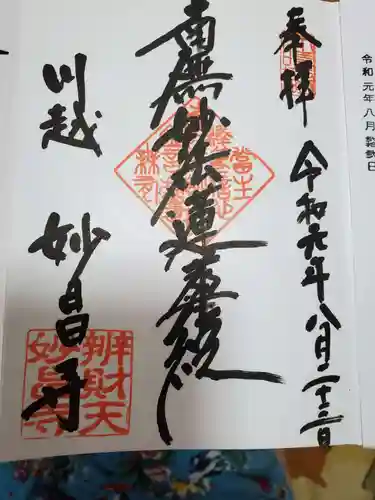 令和元年八月
奉拝
令和元年八月二十三日
南無妙法蓮華経
川越
妙昌寺
弁財天
妙昌寺